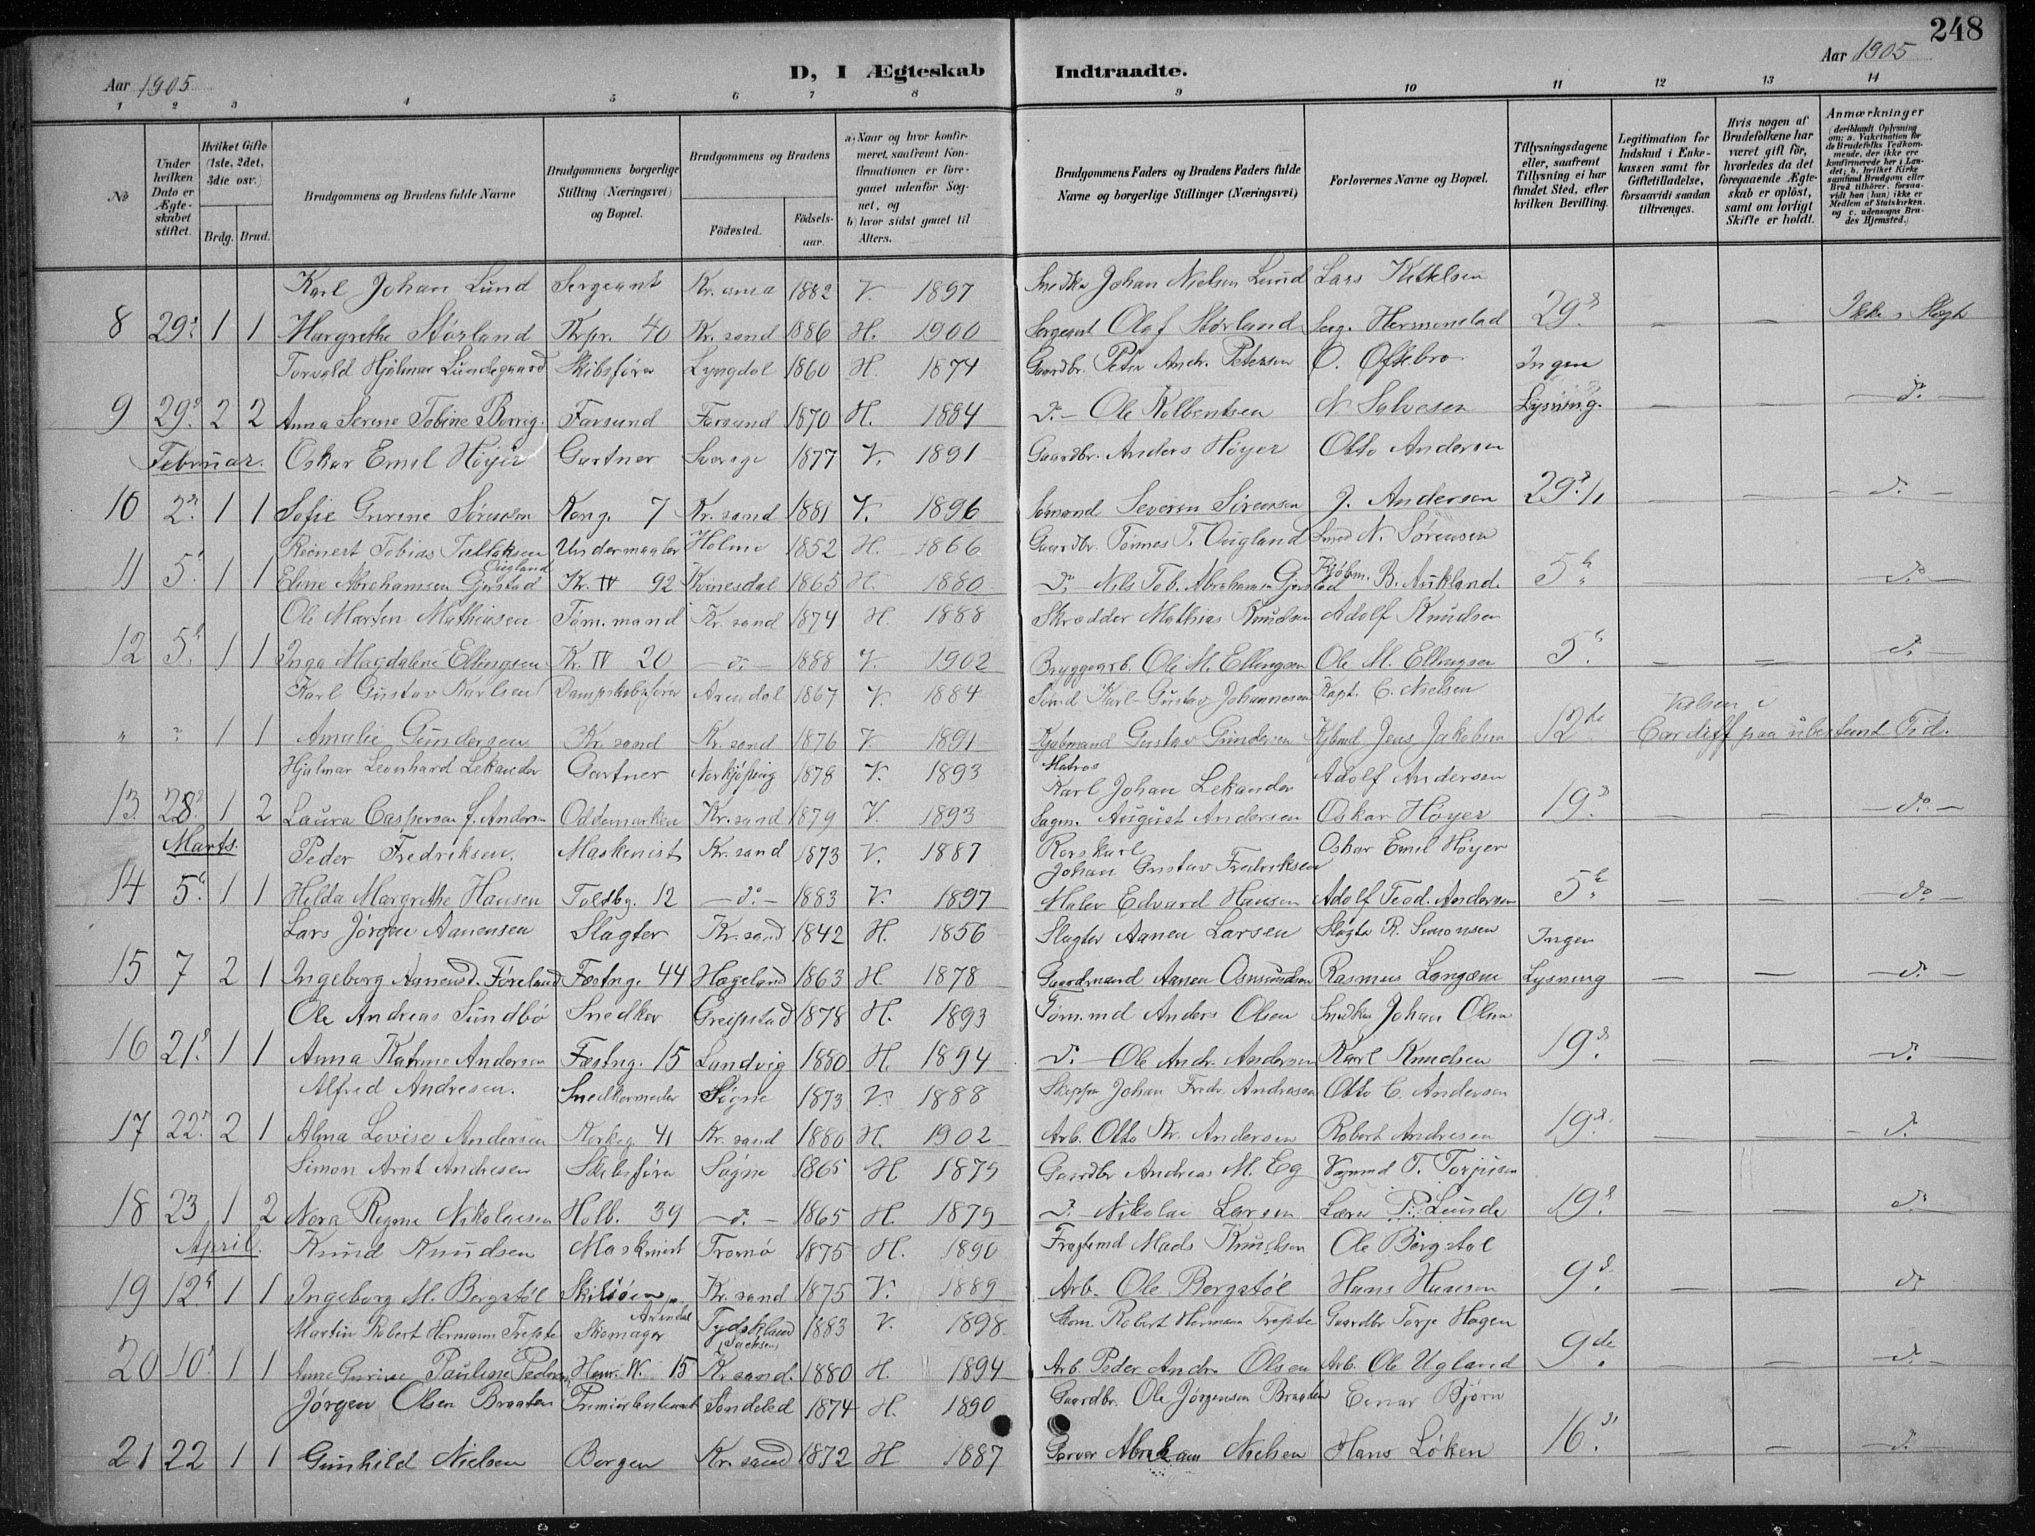 248
Aar 1905
D, I Ægteskab Indtraadte.
Aar 1905
1 2 3 4 5 6 7 8 9 10 11 12 13 14
No
Under hvilken Dato er Ægteskabet stiftet.
Hvilket Gifte (1ste, 2det, 3die osv.)
Brdg. Brud.
Brudgommens og Brudens fulde Navne
Brudgommens borgerlige Stilling (Næringsvei) og Bopæl.
Brudgommens og Brudens
Fødested. Fødselsaar.
a) Naar og hvor konfirmeret, saafremt Konfirmationen er foregaaet udenfor Sognet, og
b) hvor sidst gaaet til Alters.
Brudgommens Faders og Brudens Faders fulde Navne og borgerlige Stillinger (Næringsvei)
Forlovernes Navne og Bopæl.
Tillysningsdagene eller, saafremt Tillysning ei har fundet Sted, efter hvilken Bevilling.
Legitimation for Indskud i Enkekassen samt for Giftetilladelse, forsaavidt saadan tiltrænges.
Hvis nogen af Brudefolkene har været gift før, hvorledes da det foregaaende Ægteskab er opløst, samt om lovligt Skifte er holdt.
Anmærkninger (deriblandt Oplysning om: a. Vakcination for de Brudefolks Vedkommende, der ikke ere konfirmerede her i Landet; b. hvilket Kirkesamfund Brudgom eller Brud tilhører, forsaavidt han (hun) ikke er Medlem af Statskirken, og c. udensogns Brudes Hjemsted.)
Karl Johan Lund Sergeant Kr. ania 1882 V. 1897 Johan Nielsen Lund Lars Kittelsen
8 29. 1 1 Margrethe Störland Krpr. 40 Kr. sand 1886 H. 1900 Sergeant Olaf Störland Serg. Hermenstad 29. — — Ikke i Slegt
Torvald Hjalmar Lundegaard Skibsfører Lyngdal 1860 H. 1874 Gaardbr. Peter Andr. Petersen O. Oftebro Ingen
9 29. 2 2 Anna Serine Tobine Borrig. Farsund Farsund 1870 H. 1884 do — Ole Kolbentsen N Salvesen Lysning. — — do —
Februar. Oskar Emil Höyer Gartner Sverige 1877 V. 1891 Gaardbr. Anders Höyer Otto Andersen
10 2. 1 1 Sofie Gurine Sörensen Kong. 7 Kr. sand 1881 V. 1896 Sömand Severin Sörensen J. Andersen 29./1 — — do —
Reinert Tobias Tallaksen Undermaaler Holme 1852 H. 1866 Gaardbr. Tönnes T. Ougland Smed N. Sörensen
Ougland
11 5. 1 1 Eline Abrahamsen Gjerstad Kr. IV 92 Kvinesdal 1865 H. 1880 do Nils Tob. Abrahamsen Gjerstad Kjöbm. B. Aukland. 5. — — do —
Ole Marten Mathiasen Töm. mand Kr. sand 1874 H. 1888 Skrædder Mathias Knudsen Adolf Knudsen
12 5. 1 1 Inga Magdaline Ellingsen Kr. IV 20 — do — 1888 V. 1902 Bryggearb. Ole M. Ellingsen Ole M. Ellingsen 5. — — do —
Karl Gustav Karlsen Dampskibsfører Arendal 1867 V. 1884 Sömd Karl Gustav Johannesen Kapt. C. Nielsen
" " 1 1 Amalie Gundersen Kr. sand Kr. sand 1876 V. 1891 Kjöbmand Gustav Gundersen Kjbmd Jens Jakobsen 12te Cardiff paa ubestemt Tid.
Hjalmar Leonhard Lekander Gartner Norkjöping 1878 V. 1893 Matros Karl Johan Lekander Adolf Andersen
13. 28. 1 2 Laura Caspersen f. Andersen Oddemarken Kr. sand 1879 V. 1893 Sagm. August Andersen Oskar Höyer 19. — do —
Marts. Peder Fredriksen. Maskinist Kr. sand 1873 V. 1887 Rorskarl Johan Gustav Fredriksen Oskar Emil Höyer
14 5. 1 1 Hilda Margrethe Hansen Toldbg. 12 — do — 1883 V. 1897 Maler Edvard Hansen Adolf Teod. Andersen 5. — — do —
Lars Jörgen Aanensen Slagter Kr. sand 1842 H. 1856 Slagter Aanen Larsen Slagter R. Simonsen Ingen
15 7 2 1 Ingeborg Aanensd. Föreland Fæstng. 44 Hægeland 1863 H. 1878 Gaardmand Aanen Osmundsen Rasmus Langæne Lysning — — do —
Ole Andreas Sundbö Snedker Greipstad 1878 H. 1893 Töm. md Anders Olsen Snedker Johan Olsen
16 21. 1 1 Anna Katrine Andersen Fæstng. 15 Landvig 1880 H. 1894 do — Ole Andr. Andersen Karl Knudsen 19. — — do —
Alfred Andresen. Snedkermester Sögne 1873 V. 1888 Skipper Johan Fredr. Andreasen Otto C. Andersen
17 22. 2 1 Alma Lovise Andersen Kirkeg. 41 Kr. sand 1886 H. 1902 Arb. Otto Kr. Andersen Robert Andresen 19. — — do
Simon Arnt Andresen Skibsfører Sögne 1865 H 1879 Gaardbr Andreas M. Eg T. Torjusen
18 23 1 2 Nora Regine Nikolaisen Holb. 39 — do — 1865 H. 1879 do — Nikolai Larsen Lærer P. Lunde 19. — — do
April. Knud Knudsen Maskinist Tromö 1875 H. 1890 Mads Knudsen Ole Bergstöl
19 12. 1 1 Ingeborg M. Bergstöl Skilsöen Arendal Kr. sand 1875 V. 1889 Arb. Ole Bergstöl Hans Hansen 9. — — do
Martin Robert Hermann Trepte Skomager Tydskland (Sachsen) 1883 V. 1898 Skom. Robert Herman Trepte Gaardbr Torje Hagen
20 10. 1 1 Anne Gurine Pauline Pedersen Henr. W. 15 Kr. sand. 1880 H. 1894 Arb. Peder Andr. Olsen Arb. Ole Ugland 9de — — do —
Jörgen Olsen Braaten Premierlieutenant Söndeled 1874 H. 1890 Gaardbr. Ole Jörgensen Braaten Einar Björn
21 22 1 1 Gunhild Nielsen Borgen Kr. sand 1872 H 1887 Garver Abraham Nielsen Hans Löken 16. — — do